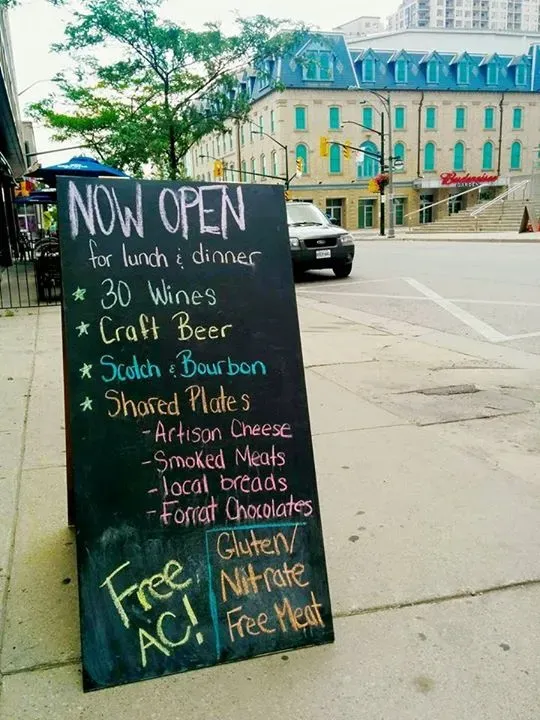 NOW OPEN
for lunch & dinner
☆ 30 Wines
☆ Craft Beer
☆ Scotch & Bourbon
☆ Shared Plates
- Artisan Cheese
- Smoked Meats
- local breads
- Forrat Chocolates
Free
AC!
Gluten/
Nitrate
Free Meat
Budweiser
GARDENS